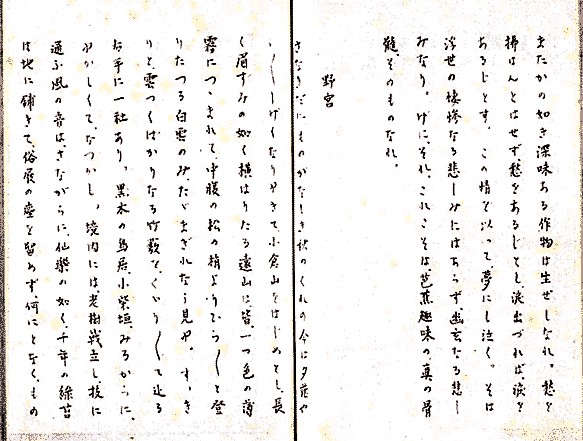 またかの如き深味ある作物は生ぜしなれ。愁を
掃はんとはせず、愁をあるじとし、涙出づれば、涙を
あるじとす。この情を以つて、夢にも泣く。そは
浮世の悽惨なる悲しみにはあらず、幽玄なる悲し
みなり。げに、それ、これこそは、芭蕉趣味の真の骨
髄そのものなれ。
野宮
さなきだにものがなしき秋のくれの今は夕靄や
しげくなりゆきて、小倉山をはじめとし、長
く眉ずみの如く横はりたる遠山は、皆、一つ色の薄
霧につゝまれて、中腹の松の梢よりひら〳〵と登
りたつる白雲のみ、たゞまぎれなう見ゆ。すゝき
りと、雲つくばかりなる竹藪をくゞり〳〵て辿る
右手に一社あり。黒木の鳥居、小柴垣、みるからに、
ゆかしくて、なつかし。境内には、老樹簇立し、枝に
通ふ風の音は、さながらに、仙楽の如く、千年の緑苔
は地に鋪きて、俗展の塵を留めず、何にとなく、もの